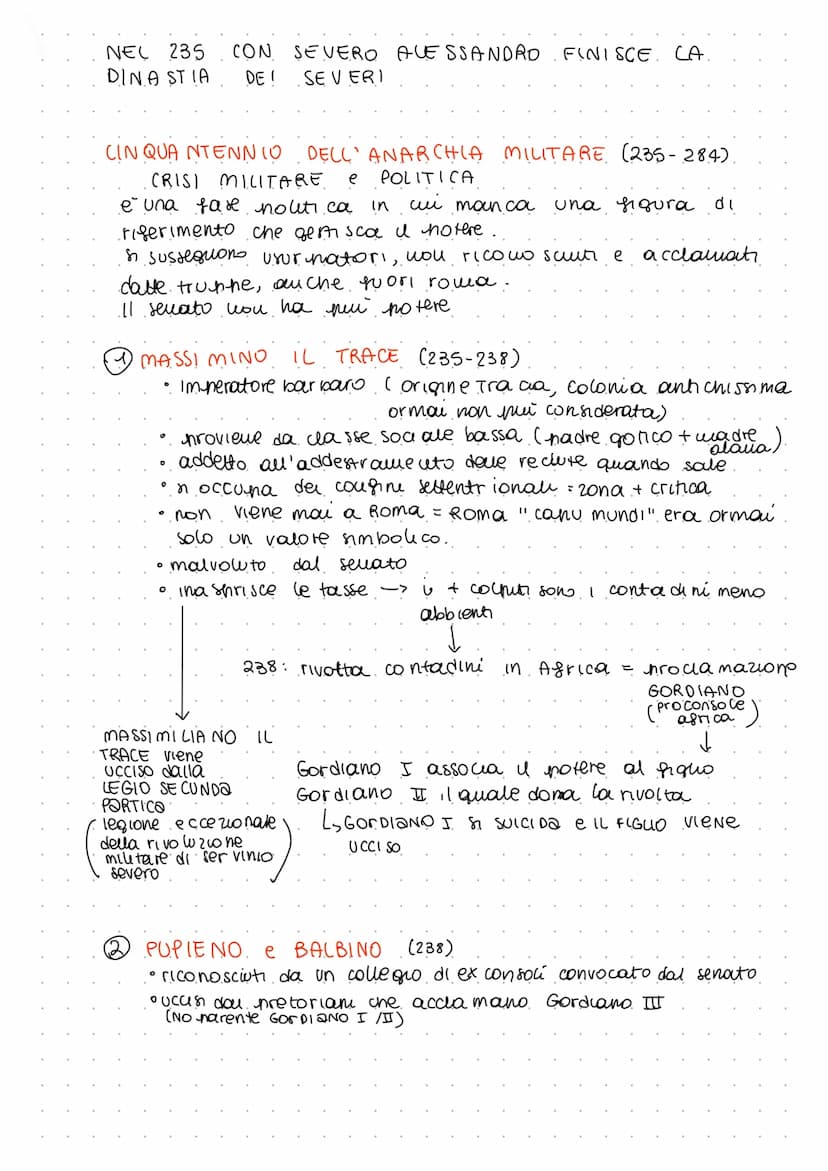 NEL 235 CON SEVERO ALESSANDRO FINISCE LA
DINASTIA DEI SEVERI
CINQUANTENNIO DELL'ANARCHIA MILITARE (235-284)
CRISI MILITARE e POLITICA
è una fase politica in cui manca una figura di
riferimento che gestisca il potere.
si susseguono usurpatori, non riconosciuti e acclamati
dalle truppe, anche fuori roma.
Il senato non ha più potere
① MASSIMINO IL TRACE (235-238)
• imperatore barbaro (origine Tracia, colonia antichissima
ormai non più considerata)
• proviene da classe sociale bassa (padre gotico + madre
alana)
• addetto all'addestramento delle reclute quando sale
• si occupa dei confini settentrionali = zona + critica
• non viene mai a Roma = Roma "capu mundi" era ormai
solo un valore simbolico.
• malvoluto dal senato
• inasprisce le tasse -> i + colpiti sono i contadini meno
abbienti
238: rivolta contadini in Africa = proclamazione
GORDIANO
(proconsole
africa)
MASSIMILIANO IL
TRACE viene
ucciso dalla
LEGIO SECUNDA
PARTICA
(legione eccezionale
della rivoluzione
militare di servinio
severo)
Gordiano I associa il potere al figlio
Gordiano II il quale doma la rivolta
↳ GORDIANO I si SUICIDA e IL FIGLIO VIENE
UCCISO
② PUPIENO e BALBINO (238)
• riconosciuti da un collegio di ex consoli convocato dal senato
• uccisi dai pretoriani che acclamano Gordiano III
(NO parente GORDIANO I/II)